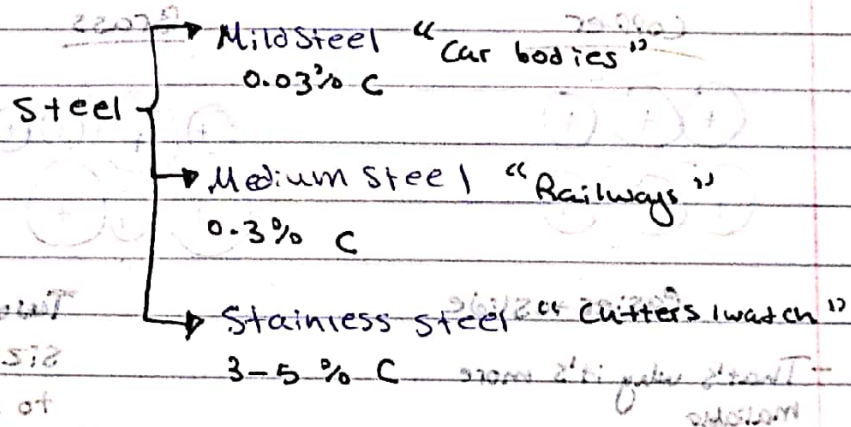 Mild Steel "Car bodies"
0.03% C
Steel
Medium Steel "Railways"
0.3% C
Stainless steel "Cutters, watch"
3-5 % C